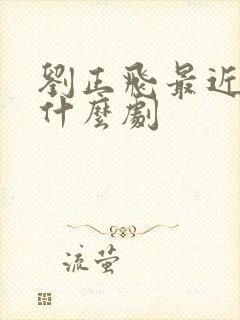 劉正飛最近
什麼劇
流萤